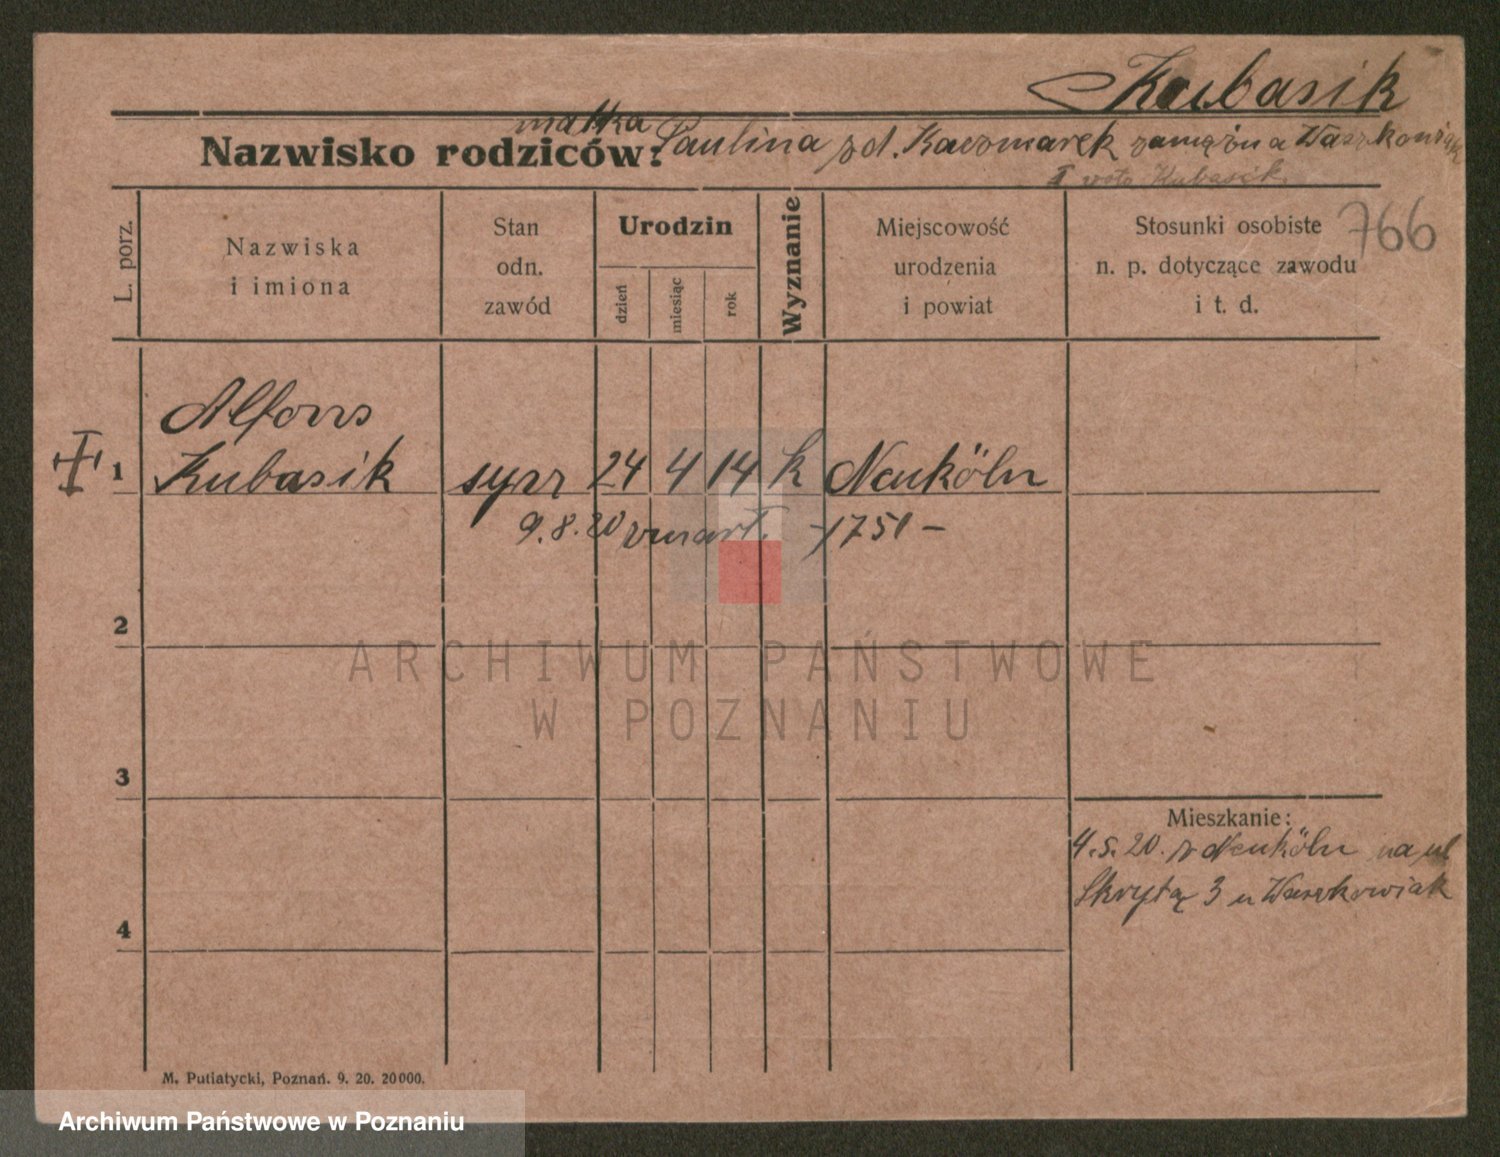 Kubasik
matka
Nazwisko rodziców: Paulina zd. Kaczmarek zamężna Waszkowiak
I voto Kubasik
766
L. porz.
Nazwiska
i imiona
Stan
odn.
zawód
Urodzin
dzień
miesiąc
rok
Wyznanie
Miejscowość
urodzenia
i powiat
Stosunki osobiste
n. p. dotyczące zawodu
i t. d.
Alfons
1 Kubasik syn 24 4 14 k Neuköln
9.8.20 zmarł. 1751 –
2
ARCHIWUM PAŃSTWOWE
W POZNANIU
3
Mieszkanie:
4.5.20. z Neuköln na ul
Skrytą 3 u Waszkowiak
4
M. Putiatycki, Poznań. 9. 20. 20000.
Archiwum Państwowe w Poznaniu